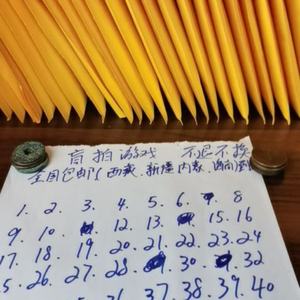 盲拍游戏 不退不换
全国包邮(西藏.新疆内蒙
1. 2. 3. 4. 5. 6. 8
9. 10. 12. 13. 15. 16
17. 18. 19. 20. 21. 22. 23. 24
25. 26. 27. 28. 30. 32
37. 38. 39. 40